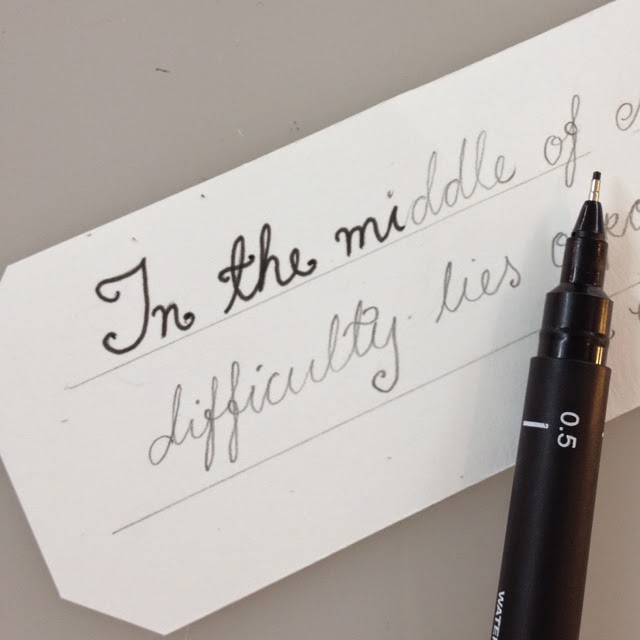 In the middle of
difficulty lies
0.5